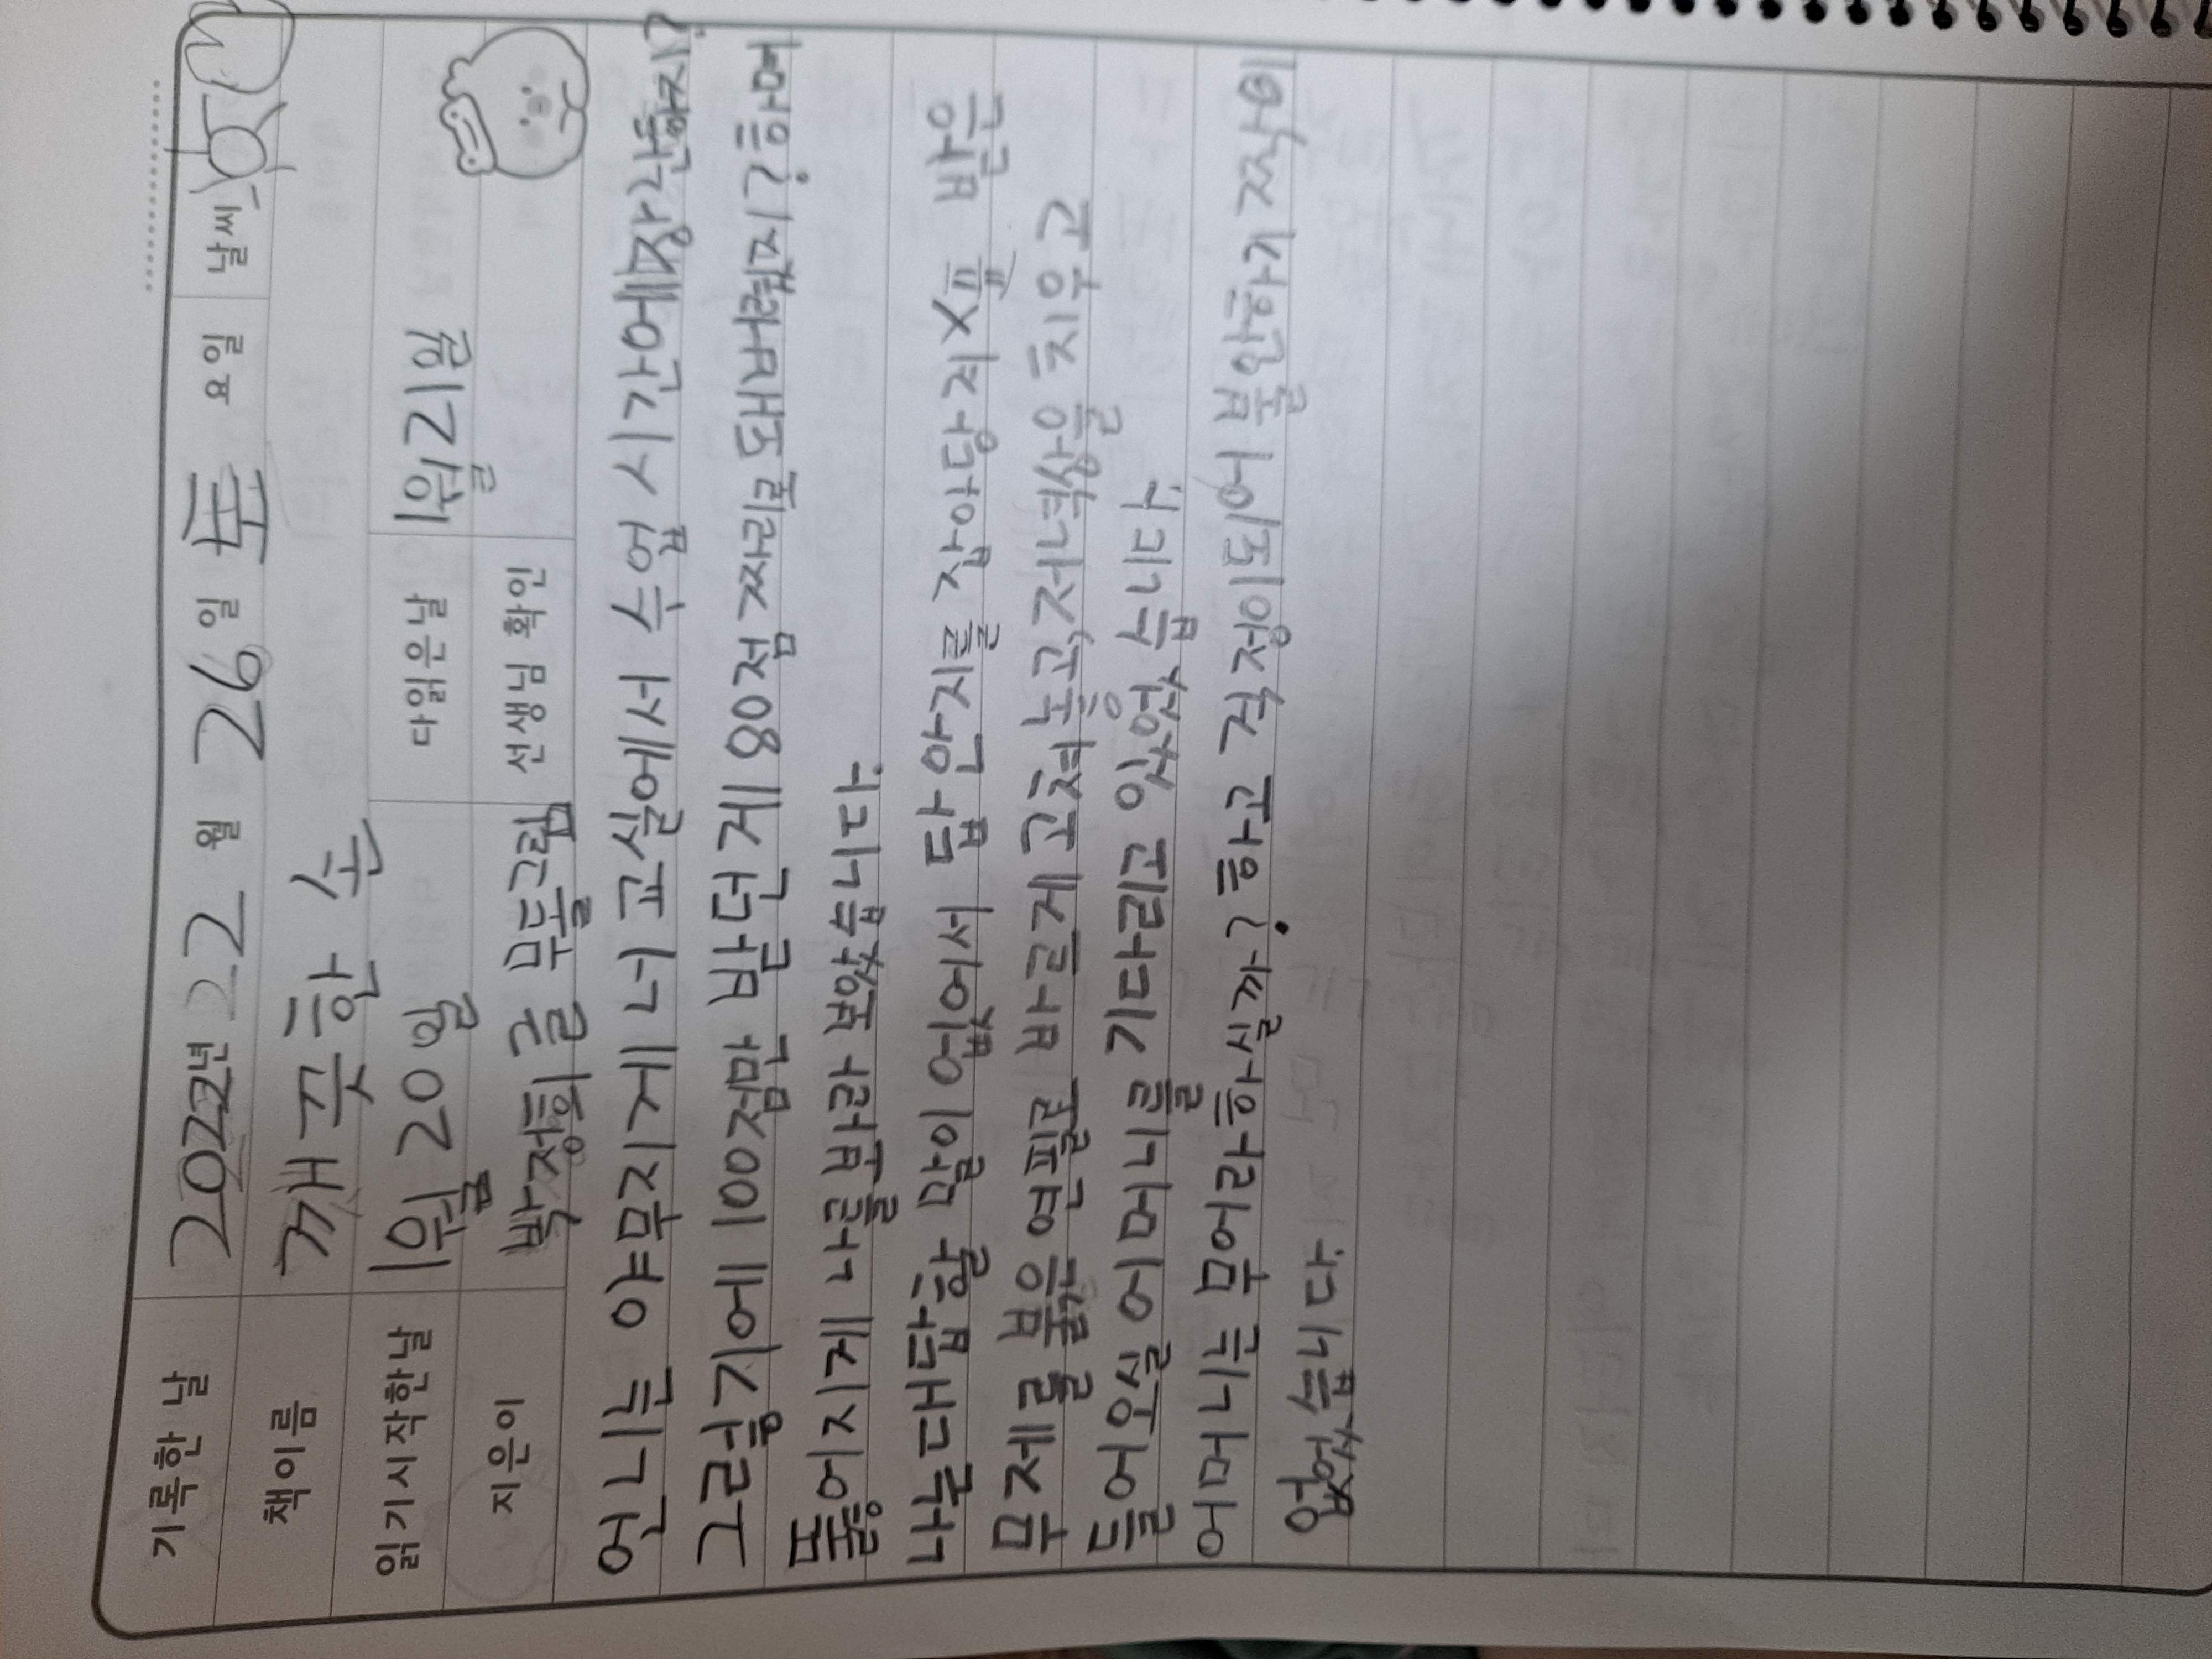 기록한 날 2022년 22 월 26 일 토 요일 날씨
책이름 깨끗한 손
읽기시작한날 1월 20일 다읽은날 1월21일
지은이 박정희 글 무돌그림 선생님 확인
언니는 야무지게 너 교실에서 수업 시간에장난하지?
그렇기에 100점만 받던게 80점 짜리로 돼버렸지? 하며
뚫어지게 나를봐라 보았습니다.
나는대답할 말이 없어서 답안지를 잡아당겨 X표 받은
무제를 붉은 연필로 바르게 고쳐놓고, 저녁상을 치우고
들어오실 어머니를 기다리고 있었습니다.
어머니는 무어라하실까? 하고 걱정이되어 불안하기 짝이
없었습니다.